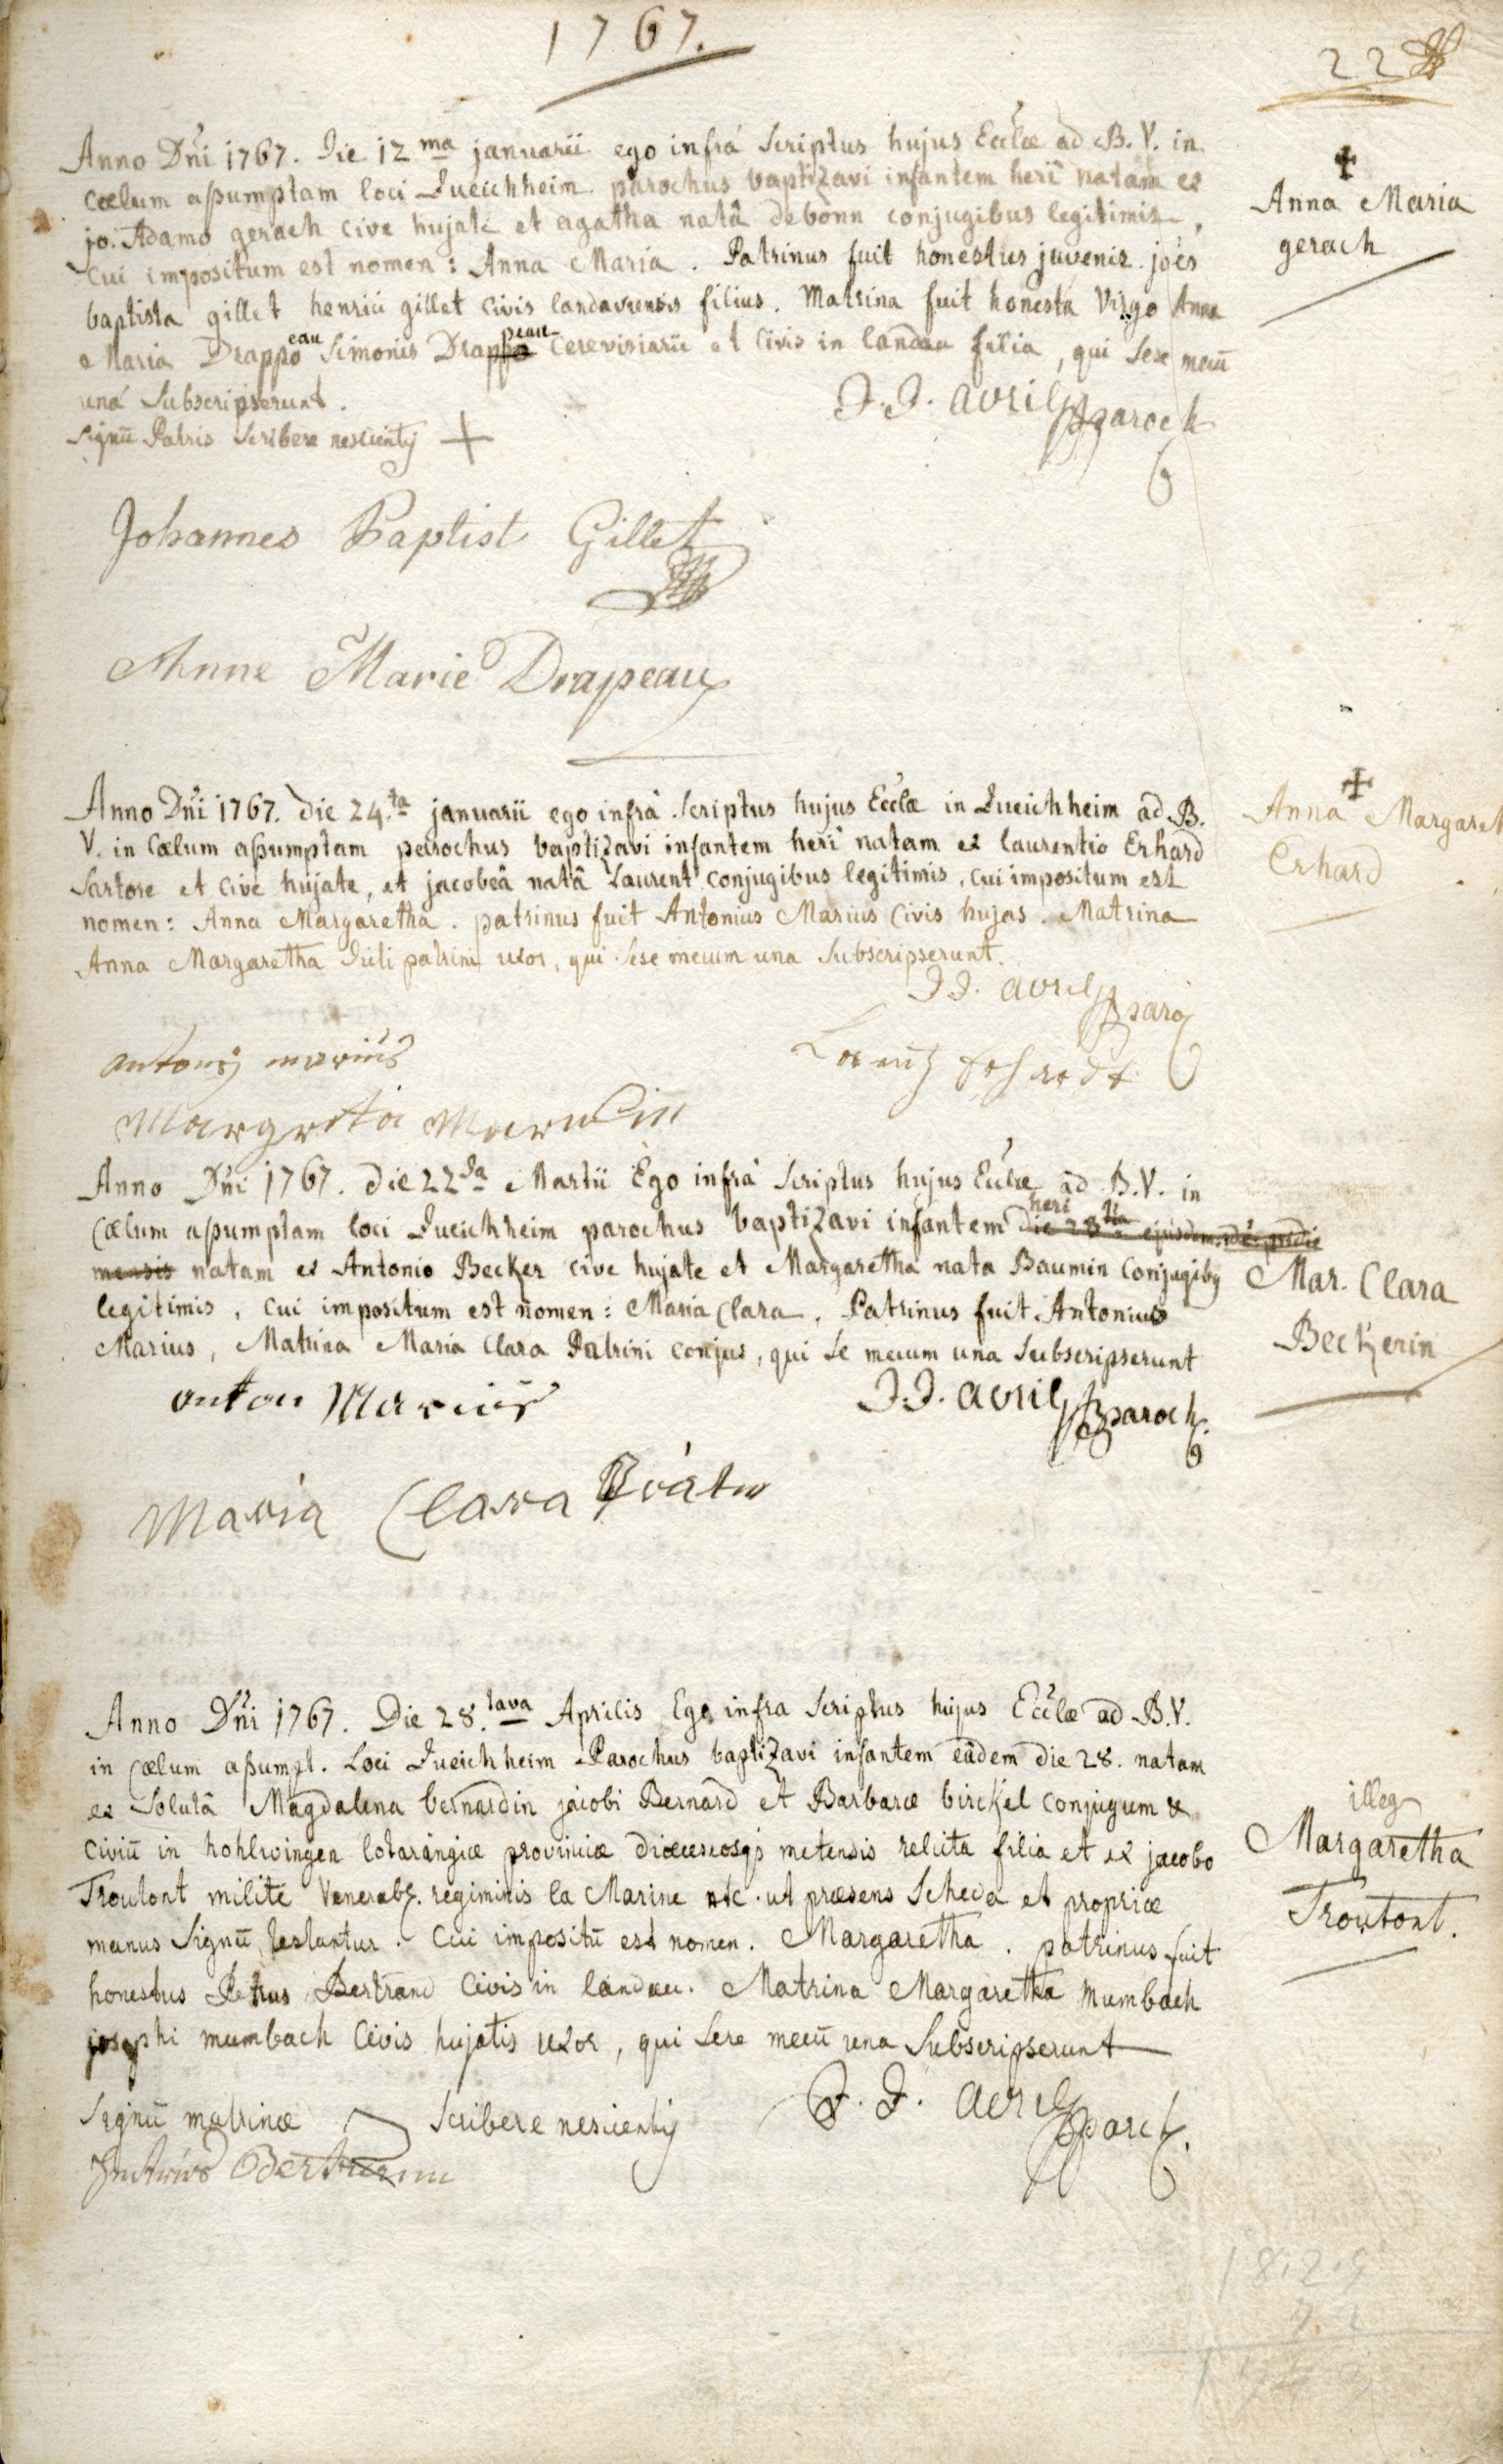 1767.
22
Anno Dñi 1767. Die 12 ma januarii ego infrà scriptus hujus Ecclæ ad B. V. in
cœlum assumptam loci Queichheim parochus baptizavi infantem heri natam ex
jo. Adamo gerach cive hujate et agatha natâ debonn conjugibus legitimis,
cui impositum est nomen: Anna Maria. Patrinus fuit honestus juvenis joës
baptista gillet henrici gillet civis landaviensis filius. Matrina fuit honesta Virgo Anna
Maria Drappo eau Simonis Drappo peau Cerevisiarii et Civis in landau filia, qui sese mecū
unà subscripserunt.
J. J. avril parock
Signū Patris scribere nescientis +
✝
Anna Maria
gerach
Johannes Baptist Gillet
Anne Marie Drapeau
Anno Dñi 1767. die 24.ta januarii ego infrà scriptus hujus Ecclæ in Queichheim ad B.
V. in Cœlum assumptam parochus baptizavi infantem heri natam ex laurentio Erhard
Sartore et cive hujate, et jacobeâ natâ Laurent conjugibus legitimis, cui impositum est
nomen: Anna Margaretha. patrinus fuit Antonius Marius Civis hujas. Matrina
Anna Margaretha dicti patrini uxor, qui sese mecum una subscripserunt.
J J. avril paro
✝
Anna Margaret
Erhard
antonij marius
Margreta
Anno Dñi 1767. die 22 da Martii Ego infrà scriptus hujus Ecclæ ad B. V. in
Cœlum assumptam loci Queichheim parochus baptizavi infantem heri die 28 ejusdem
mensis natam ex Antonio Becker cive hujate et Margaretha nata Baumin Conjugibus
legitimis, cui impositum est nomen: Maria Clara. Patrinus fuit Antonius
Marius, Matrina Maria Clara Patrini conjus, qui se mecum una subscripserunt
J. J. avril paroch.
Mar. Clara
Beckerin
anton Marius
Maria Clara
Anno Dñi 1767. Die 28.tava Aprilis Ego infra scriptus hujus Ecclæ ad B. V.
in Cœlum assumpt. Loci Queichheim Parochus baptizavi infantem eâdem die 28. natam
ex solutâ Magdalena bernardin jacobi Bernard et Barbaræ birckel conjugum &
civiū in hohlwingen lotaringiæ provinciæ diœceseosq; metensis relicta filia et ex jacobo
Troutont milite Venerab. regiminis la Marine etc. ut præsens Scheda et propriæ
manus signū testantur. Cui impositū est nomen. Margaretha. patrinus fuit
honestus Petrus Bertrand Civis in landau. Matrina Margaretha Mumbach
josephi mumbach Civis hujatis uxor, qui sese mecū una subscripserunt
illeg
Margaretha
Troutont.
Signū matrinæ scribere nescientis
J. J. avril paroch.